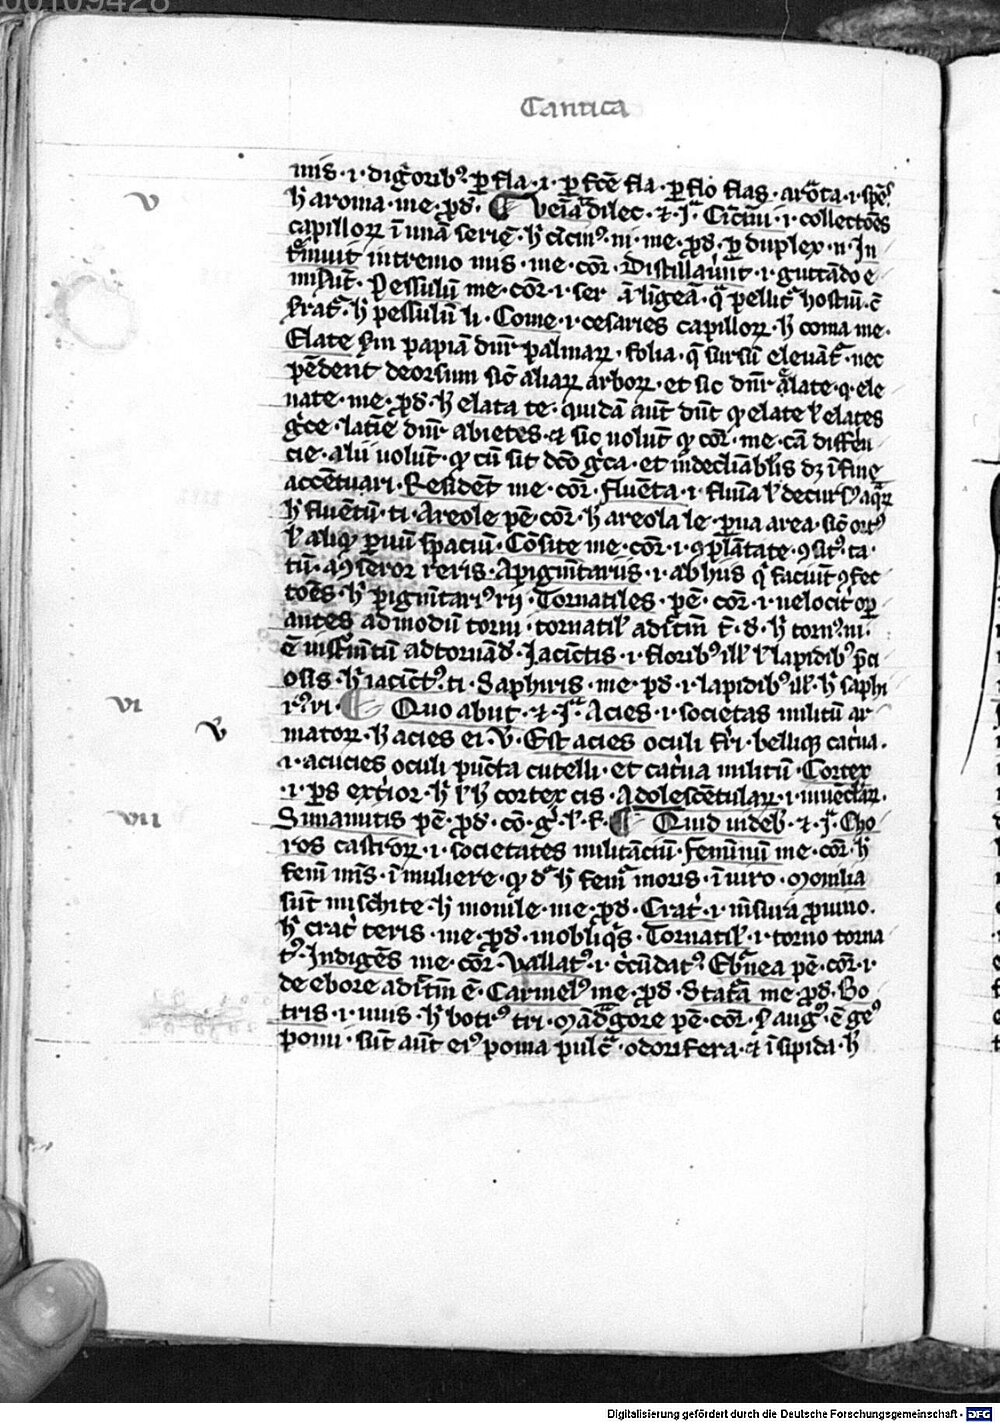 00109428
Cantica
mis · i · dig̃orib9 · ꝑ fla · i · ꝑ fc̃e fla · ꝑ flo flas · arõta · i · spẽs
v
h̃ aroma · me · ꝓd · ¶ veĩa dilec · ⁊ c̃ · Cĩcĩni · i · collectões
capilloꝝ ĩ unã seriẽ · h̃ cĩcin9 · ni · me · ꝓd · ꝑ duplex · n · In
intremo mis · me · cor̃ · Distillaũnt · i · guttãdo e
Pessulũ me · cor̃ · i · ser ã lĩgeã · q̃ pellit̃ hostiũ · c̃
h̃ pessulũ li · Come · i · cesaries capilloꝝ · h̃ coma me ·
Elate sm̃ papiã dnr̃ palmaꝝ · folia · q̃ sursũ elevãt̃ · nec
pẽdent deorsum sic̃ aliaꝝ arboꝝ · et sic dnr̃ ãlate · q · ele
uate · me · ꝓd · h̃ elata te · quidã aũt dñt ꝙ elate l̃ elates
g̃ce · latĩe dnr̃ abietes · ⁊ sic uolũt ꝙ cor̃ · me · cã diffẽn
cie · alii uolũt · ꝙ cũ sit dc̃o g̃ca · et indeclĩabĩlis dꝫ ĩ fine
accẽtuari · Residẽt me · cor̃ · fluẽta · i · fluĩa l̃ decurs9 aq̃ꝝ
h̃ fluẽtũ · ti · Areole pẽ · cor̃ · h̃ areola le · ꝑua area · sic̃ ort9
l̃ aliq̃ ꝑuũ spaciũ · Cõsite me · cor̃ · i · ꝯplãtate · ꝯsit9 · ta ·
tũ · a ꝯseror reris · A pigm̃tariis · i · ab hiis q̃ faciũt ꝯfec
tões · h̃ pigm̃tari9 rii · Tornatiles · pẽ · cor̃ · i · uelocit̃ oꝑ
antes ad modũ torni · tornatil̃ · h̃ torn9 · ni ·
ẽ inst̃m̃tũ ad tornãd̃ · Iacĩctis · i · florib9 ill̃ l̃ lapidib9 p̃ci
osis · h̃ iacĩct9 · ti · Saphiris · me · ꝓd · i · lapidib9 ill̃ · h̃ saphi
vi
r9 · ri · ¶ Quo abiit · ⁊ c̃ · Acies · i · societas militũ ar
v̓
matoꝝ · h̃ acies ei · v̓ · Est acies oculi fr̃i · belliqꝫ cat̃ua ·
i · acucies oculi pũcta cutelli · et cat̃ua militũ · Cortex
· i · ꝑs ext̃ior · h̃ l̃ h̃ cortex cis · Adolescẽtulaꝝ · i · iuuẽclaꝝ ·
vii
Sunamitis pẽ · ꝓd · cõ · g̃ · l̃ · f · ¶ Quid uideb̃ · ⁊ c̃ · Cho
ros castroꝝ · i · societates militãciũ · Feminiũ me · cor̃ · h̃
fem̃ mĩs · ĩ muliere · ꝙ d̃ h̃ fem̃ moris · ĩ uiro · Monilia
sũt muschite · h̃ monile · me · ꝓd · Crat̃ · i · mẽsura ꝓ uino ·
h̃ crat̃ teris · me · ꝓd · in obliq9s · Tornatil̃ · i · torno torna
t9 · Indigẽs me · cor̃ · Vallat9 · i · c̃cũdat9 Eb̃nea pẽ · cor̃ · i ·
de ebore · Carmel9 me · ꝓd · Stat̃a me · ꝓd · Bo
tris · i · uuis · h̃ botr9 tri · Mãd̃gore pẽ · cor̃ · s̃ aug9 · ẽ ge9
pomi · sũt aũt ei9 poma pulc̃ · odorifera · ⁊ ĩsipida · h̃
Digitalisierung gefördert durch die Deutsche Forschungsgemeinschaft - DFG